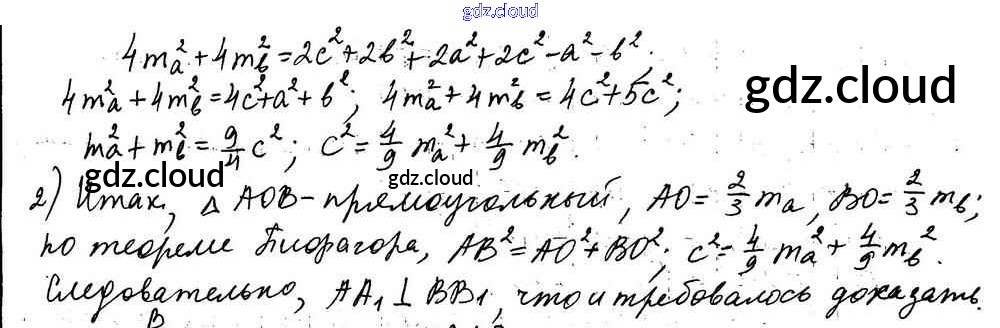 gdz.cloud
4m_a^2 + 4m_b^2 = 2c^2 + 2b^2 + 2a^2 + 2c^2 - a^2 - b^2;
4m_a^2 + 4m_b^2 = 4c^2 + a^2 + b^2; 4m_a^2 + 4m_b^2 = 4c^2 + 5c^2;
gdz.cloud
m_a^2 + m_b^2 = 9/4 c^2; c^2 = 4/9 m_a^2 + 4/9 m_b^2.
gdz.cloud gdz.cloud
2) Итак, △ AOB - прямоугольный, AO = 2/3 m_a, BO = 2/3 m_b;
по теореме Пифагора, AB^2 = AO^2 + BO^2; c^2 = 4/9 m_a^2 + 4/9 m_b^2.
Следовательно, AA_1 ⊥ BB_1, что и требовалось доказать.
B